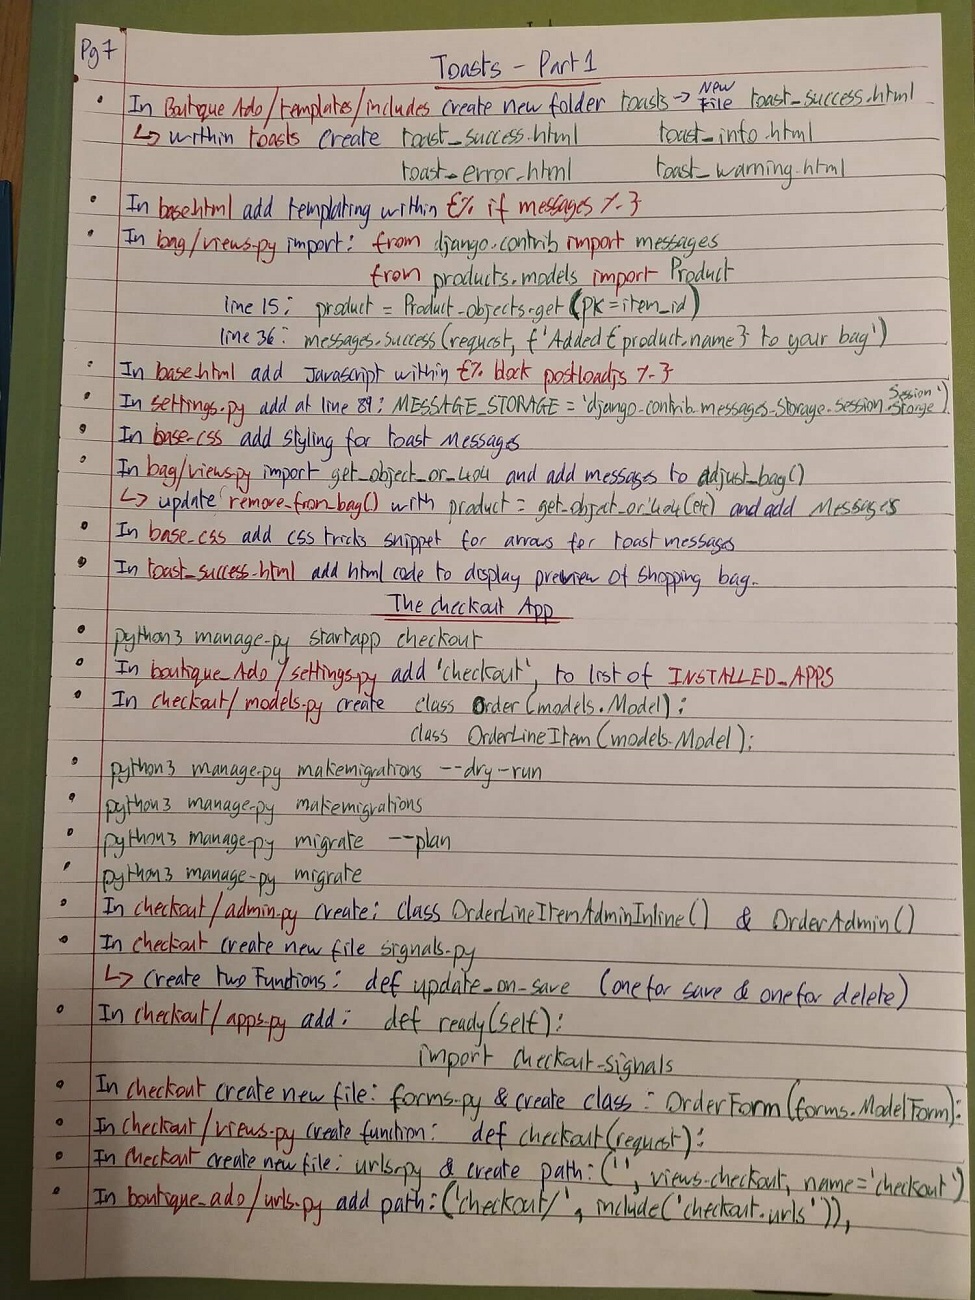 Pg 7
Toasts - Part 1
• In Boutique Ado/templates/includes create new folder toasts → New File toast_success.html
↳ within toasts create toast_success.html toast_info.html
toast_error.html toast_warning.html
• In base.html add templating within {% if messages %}
• In bag/views.py import: from django.contrib import messages
from products.models import Product
line 15: product = Product.objects.get(pk=item_id)
line 36: messages.success(request, f'Added {product.name} to your bag')
• In base.html add Javascript within {% block postloadjs %}
• In settings.py add at line 89: MESSAGE_STORAGE = 'django.contrib.messages.storage.session.SessionStorage')
• In base.css add styling for toast Messages
• In bag/views.py import get_object_or_404 and add messages to adjust_bag()
↳ update remove_from_bag() with product = get_object_or_404(etc) and add Messages
• In base.css add css tricks snippet for arrows for toast messages
• In toast_success.html add html code to display preview of Shopping bag.
The checkout App
• python3 manage.py startapp checkout
• In boutique_Ado/settings.py add 'checkout', to list of INSTALLED_APPS
• In checkout/models.py create class Order(models.Model):
class OrderLineItem(models.Model):
• python3 manage.py makemigrations --dry-run
• python3 manage.py makemigrations
• python3 manage.py migrate --plan
• python3 manage.py migrate
• In checkout/admin.py create: class OrderLineItemAdminInline() & OrderAdmin()
• In checkout create new file signals.py
↳ create two Functions: def update_on_save (one for save & one for delete)
• In checkout/apps.py add: def ready(self):
import checkout.signals
• In checkout create new file: forms.py & create class: OrderForm(forms.ModelForm):
• In checkout/views.py create function: def checkout(request):
• In checkout create new file: urls.py & create path: ('', views.checkout, name='checkout')
• In boutique_ado/urls.py add path: ('checkout/', include('checkout.urls')),